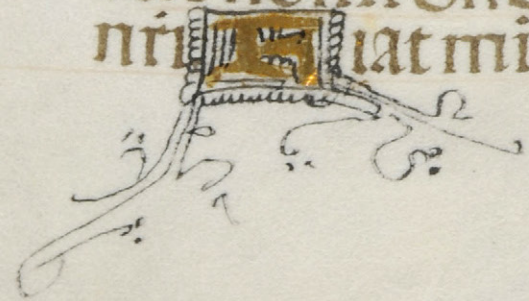 nri Fiat mi